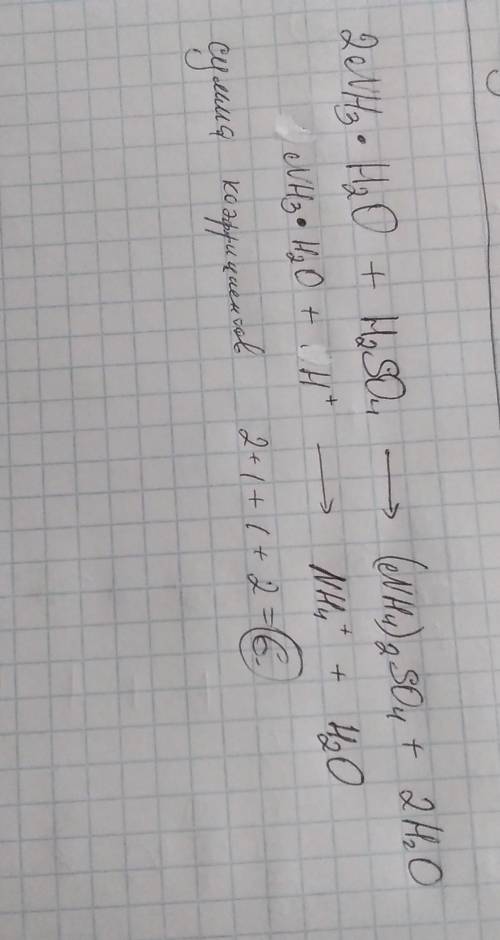 2NH₃·H₂O + H₂SO₄ → (NH₄)₂SO₄ + 2H₂O
NH₃·H₂O + H⁺ → NH₄⁺ + H₂O
сумма коэффициентов 2+1+1+2=6.